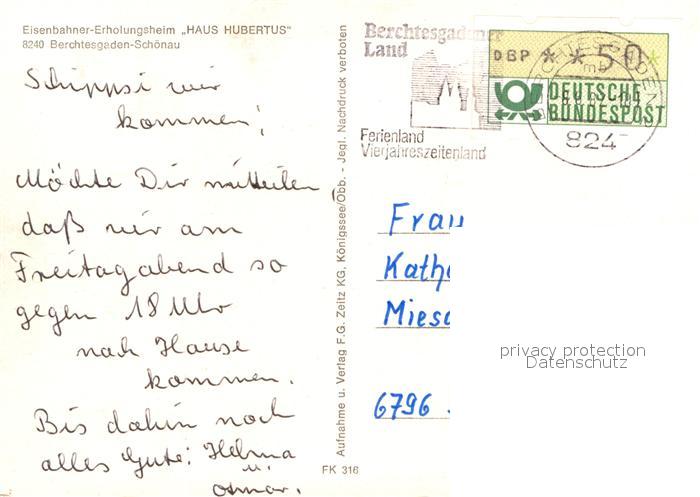 Eisenbahner-Erholungsheim „HAUS HUBERTUS"
8240 Berchtesgaden-Schönau
Schippsi wir
kommen!
Möchte Dir mitteilen
daß wir am
Freitagabend so
gegen 18 Uhr
nach Hause
kommen.
Bis dahin noch
alles Gute: Helma
u.
Otmar.
Aufnahme u. Verlag F.G. Zeitz KG, Königssee/Obb. - Jegl. Nachdruck verboten
FK 316
Berchtesgadener
Land
Ferienland
Vierjahreszeitenland
DBP **50*
DEUTSCHE
BUNDESPOST
BERCHTESGADEN
mb
824
Frau
Kath
Miesa
6796
privacy protection
Datenschutz